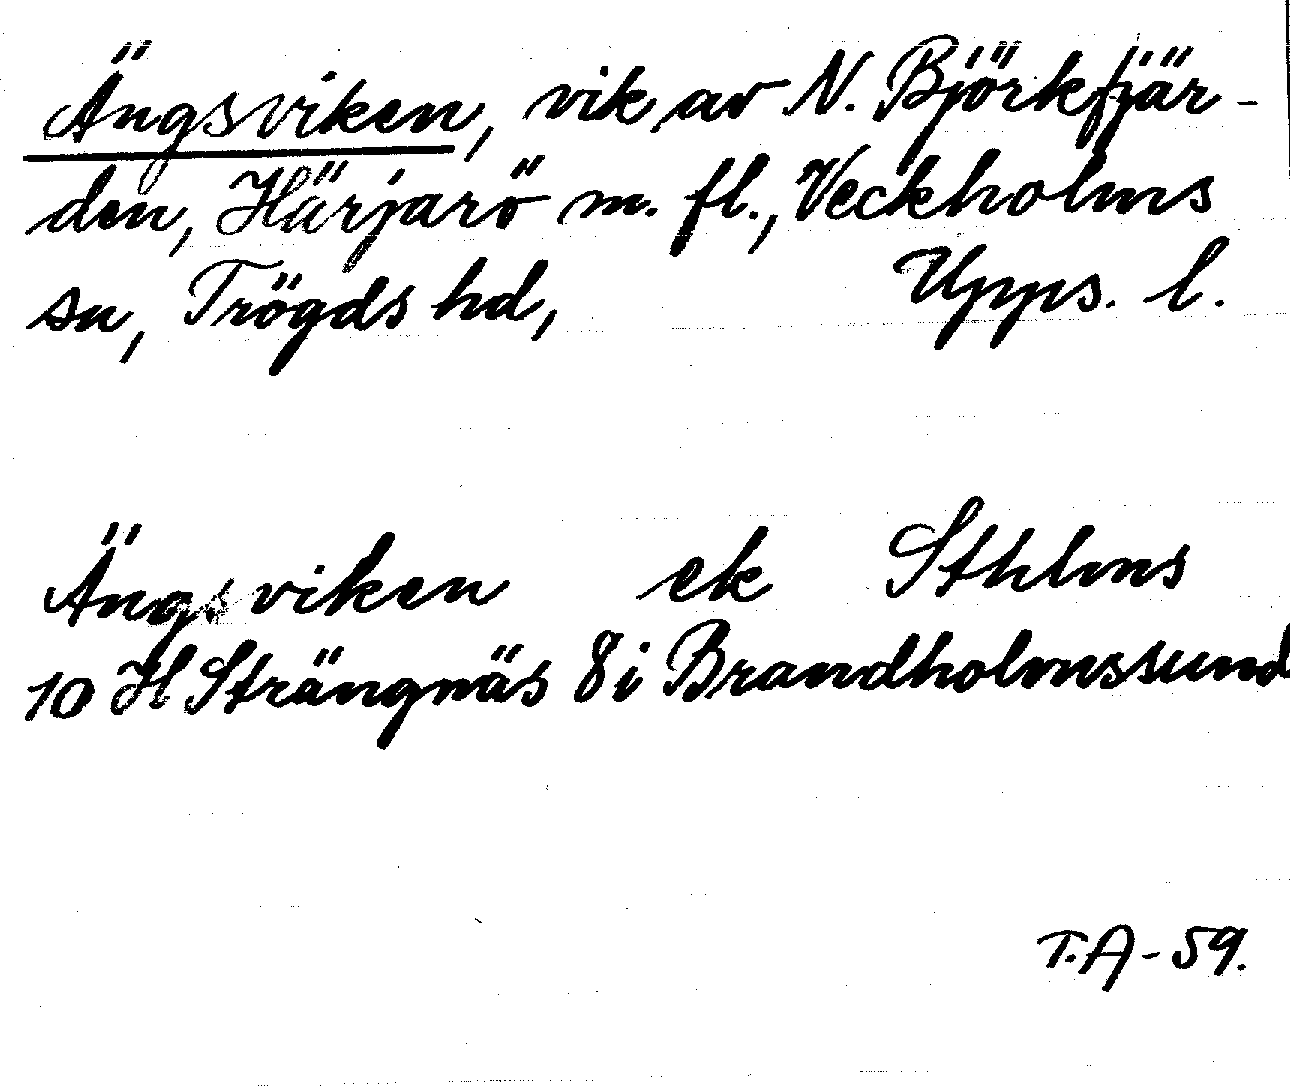 Ängsviken, vik av N. Björkfjär-
den, Härjarö m. fl., Veckholms
sn, Trögds hd, Upps. l.
Ängsviken ek Sthlms
10 H Strängnäs 8 i Brandholmssund
T.A-59.